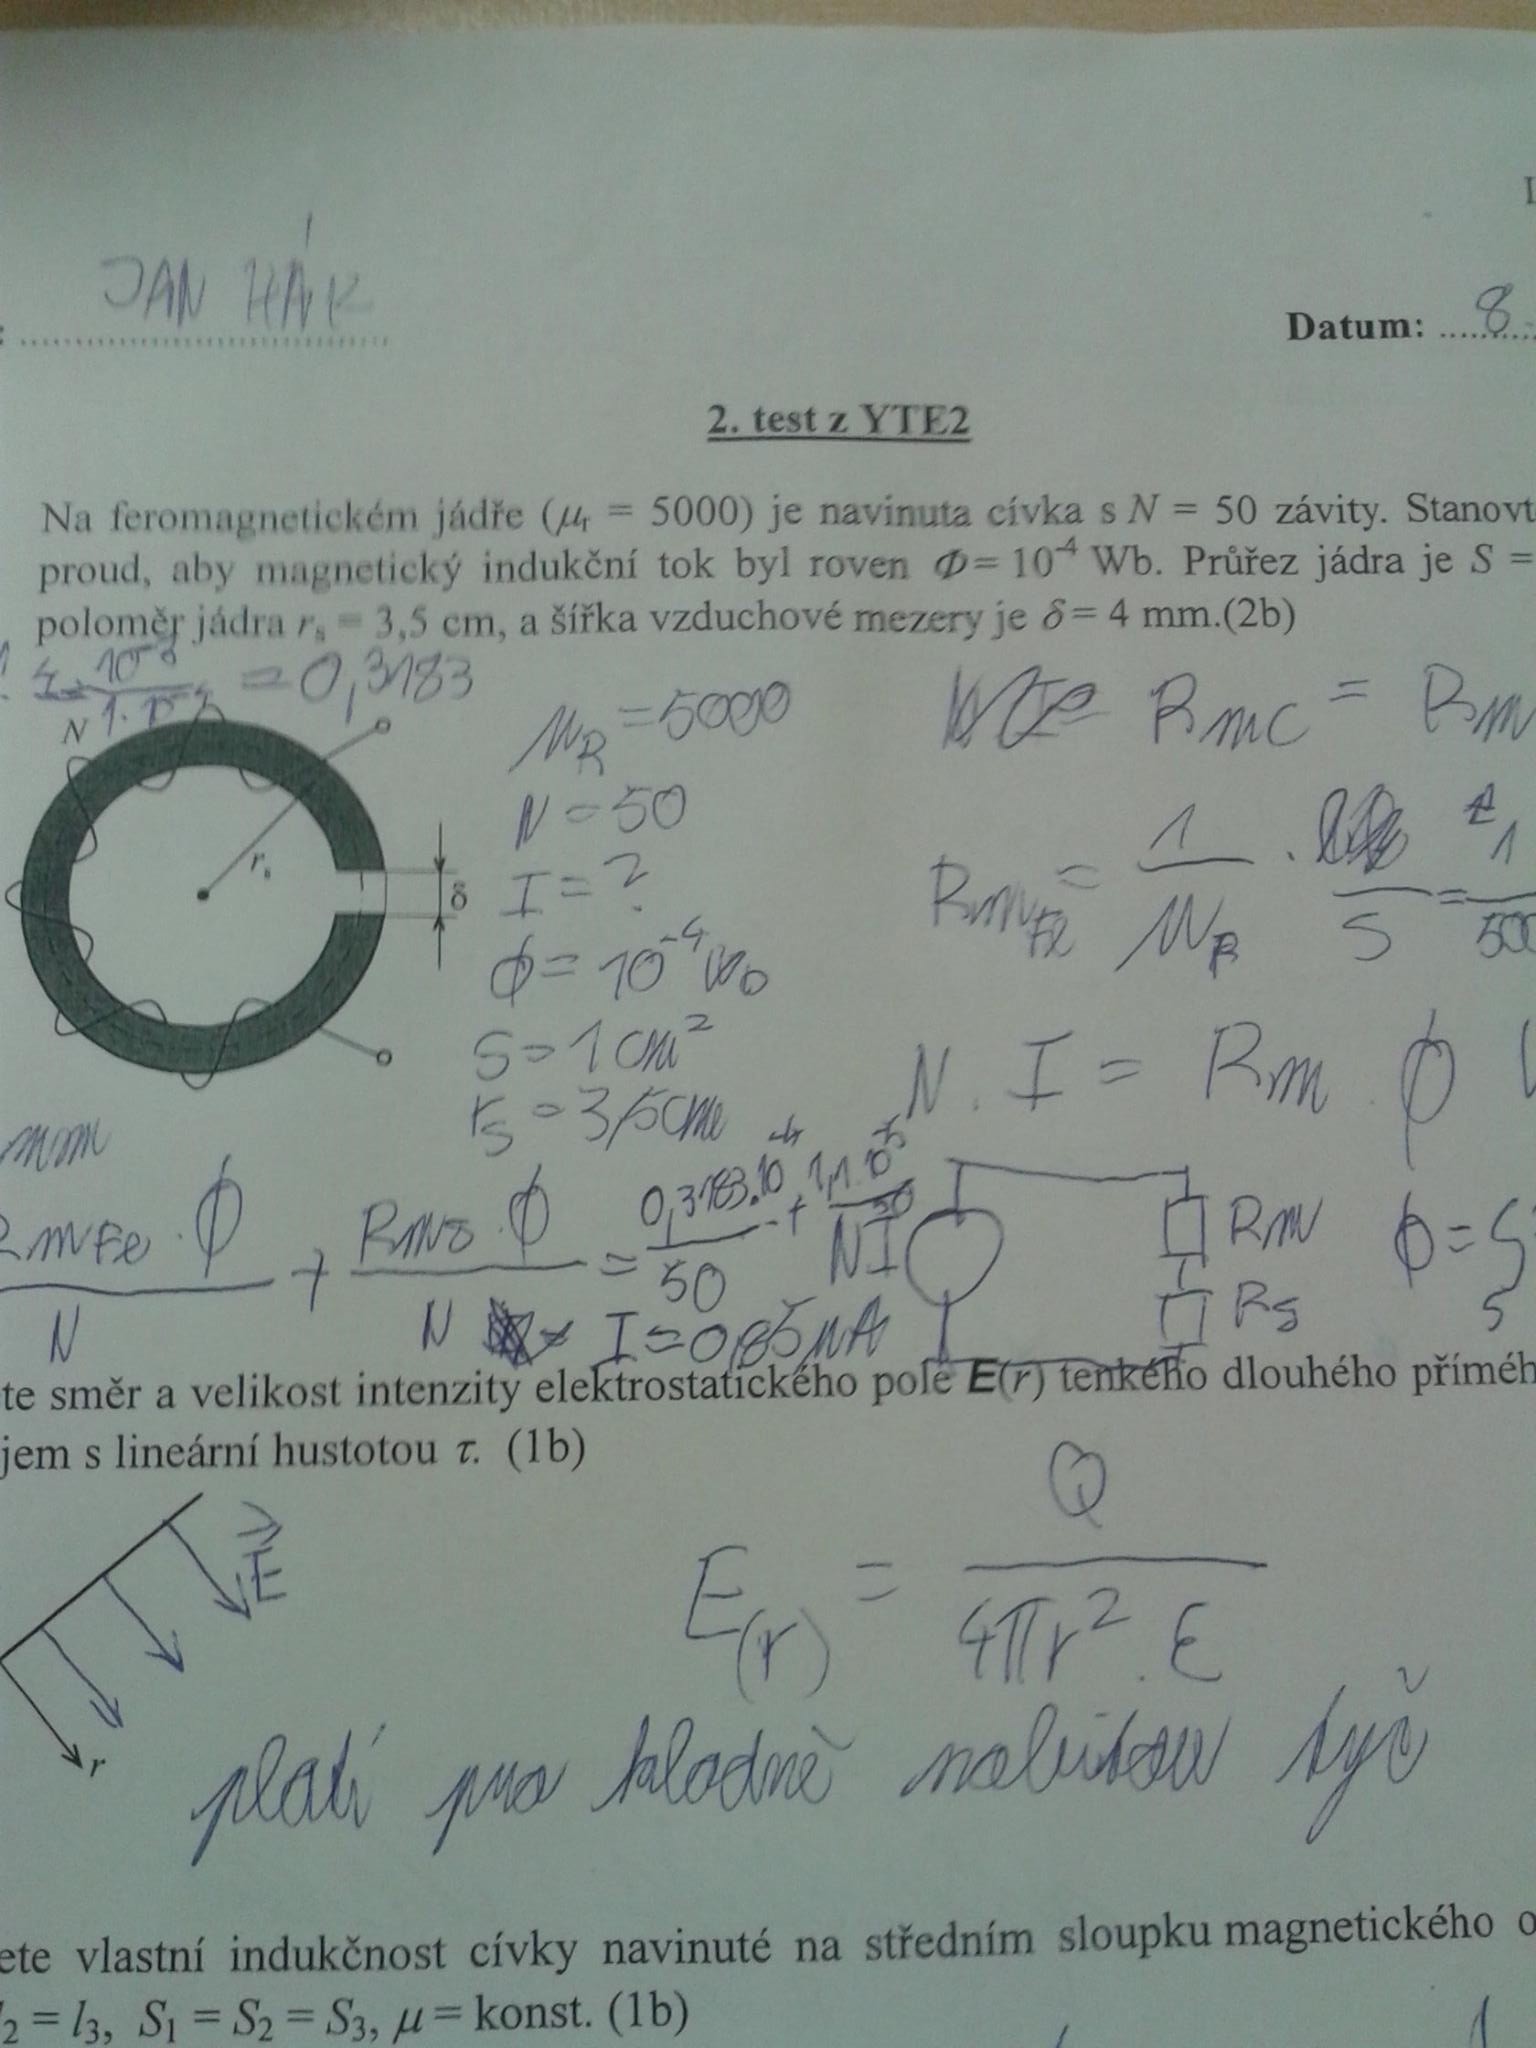 JAN HÁK
Datum: ........ 8
2. test z YTE2
Na feromagnetickém jádře (μr = 5000) je navinuta cívka s N = 50 závity. Stanovt
proud, aby magnetický indukční tok byl roven Φ = 10⁻⁴ Wb. Průřez jádra je S =
poloměr jádra rs = 3,5 cm, a šířka vzduchové mezery je δ = 4 mm.(2b)
= 0,3183
N
rs
δ
μR = 5000
N = 50
I = ?
ϕ = 10⁻⁴ Wb
S = 1 cm²
rs = 3,5 cm
Rmc = Rm
RmFe = 1/μR · /S = 1/500
N . I = Rm ϕ
mm
RmFe . ϕ / N + Rmδ . ϕ / N = 0,3183.10 / 50 +
I = 0,85 μA
NI
Rm
Rδ
ϕ = S
te směr a velikost intenzity elektrostatického pole E(r) tenkého dlouhého příméh
jem s lineární hustotou τ. (1b)
E
r
E(r) = Q / 4πr² . ε
platí pro kladně nabitou tyč
ete vlastní indukčnost cívky navinuté na středním sloupku magnetického o
l2 = l3, S1 = S2 = S3, μ = konst. (1b)